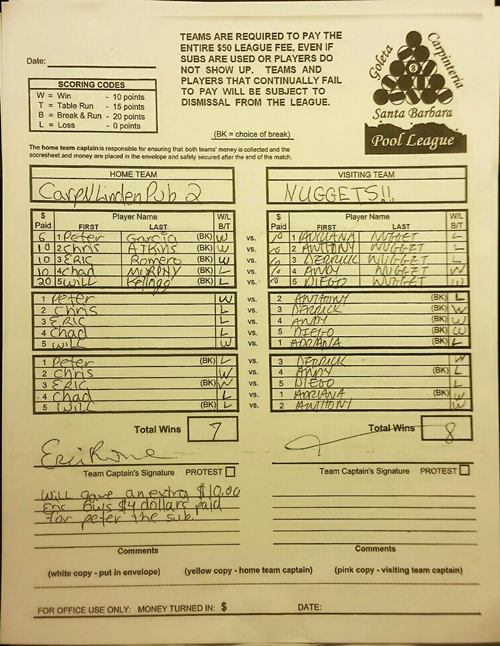 TEAMS ARE REQUIRED TO PAY THE
ENTIRE $50 LEAGUE FEE, EVEN IF
SUBS ARE USED OR PLAYERS DO
NOT SHOW UP. TEAMS AND
PLAYERS THAT CONTINUALLY FAIL
TO PAY WILL BE SUBJECT TO
DISMISSAL FROM THE LEAGUE.
(BK = choice of break)
Date:
SCORING CODES
W = Win - 10 points
T = Table Run - 15 points
B = Break & Run - 20 points
L = Loss - 0 points
Goleta Carpinteria
Santa Barbara
Pool League
The home team captain is responsible for ensuring that both teams' money is collected and the
scoresheet and money are placed in the envelope and safely secured after the end of the match.
HOME TEAM VISITING TEAM
CarpNLinden Pub 2 NUGGETS!!
$ Paid Player Name FIRST LAST W/L B/T $ Paid Player Name FIRST LAST W/L B/T
6 1 Peter Garcia (BK) W vs. 10 1 ADRIANA NUGGET L
10 2 Chris ATKINS (BK) W vs. 10 2 ANTHONY NUGGET L
10 3 ERIC Romero (BK) W vs. 10 3 DERRICK NUGGET L
10 4 Chad MURPHY (BK) L vs. 10 4 ANDY NUGGET W
20 5 Will (BK) L vs. 10 5 DIEGO NUGGET W
1 Peter W vs. 2 ANTHONY (BK) L
2 Chris L vs. 3 DERRICK (BK) W
3 ERIC L vs. 4 ANDY (BK) W
4 Chad L vs. 5 DIEGO (BK) W
5 Will W vs. 1 ADRIANA (BK) L
1 Peter (BK) L vs. 3 DERRICK W
2 Chris W vs. 4 ANDY (BK) L
3 ERIC (BK) W vs. 5 DIEGO L
4 Chad L vs. 1 ADRIANA (BK) W
5 Will (BK) L vs. 2 ANTHONY W
Total Wins 7 Total Wins 8
Team Captain's Signature PROTEST Team Captain's Signature PROTEST
Will gave an extra $10.00
Eric $4 dollars paid
for peter the sub.
Comments Comments
(white copy - put in envelope) (yellow copy - home team captain) (pink copy - visiting team captain)
FOR OFFICE USE ONLY: MONEY TURNED IN: $ DATE: